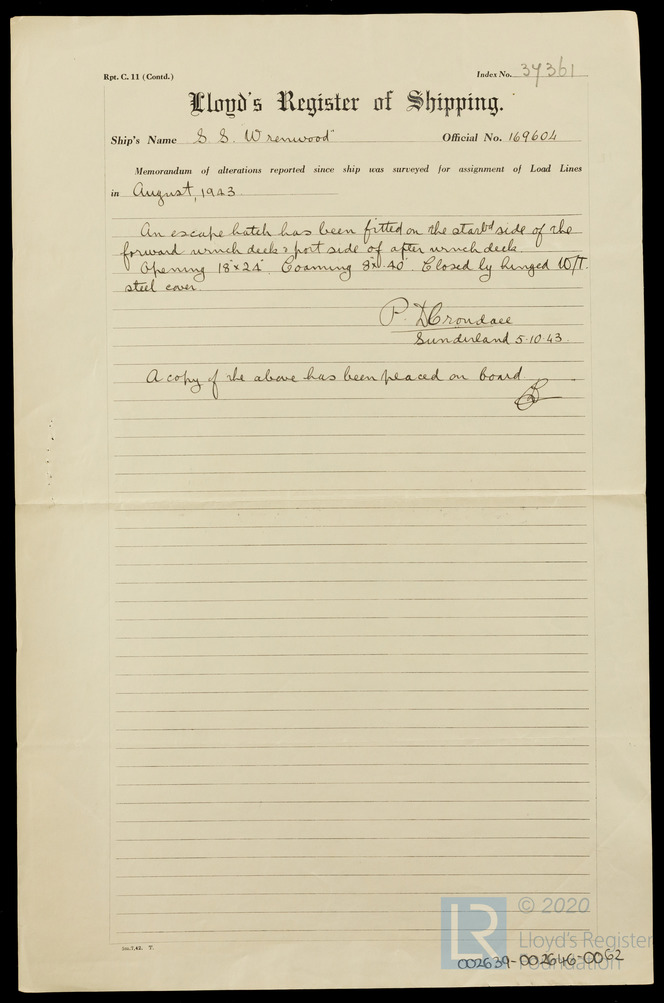 Rpt. C. 11 (Contd.) Index No. 37361
Lloyd's Register of Shipping.
Ship's Name S.S. Wrenwood" Official No. 169604
Memorandum of alterations reported since ship was surveyed for assignment of Load Lines
in August, 1943
An escape hatch has been fitted on the starbd side of the
forward winch deck & port side of after winch deck.
Opening 18"x24". Coaming 8"x.40". Closed by hinged W/T.
steel cover.
P. D. Crondace
Sunderland 5.10.43.
A copy of the above has been placed on board
5m.7.42. T.
LR © 2020
Lloyd's Register
Foundation
002639-002646-0062